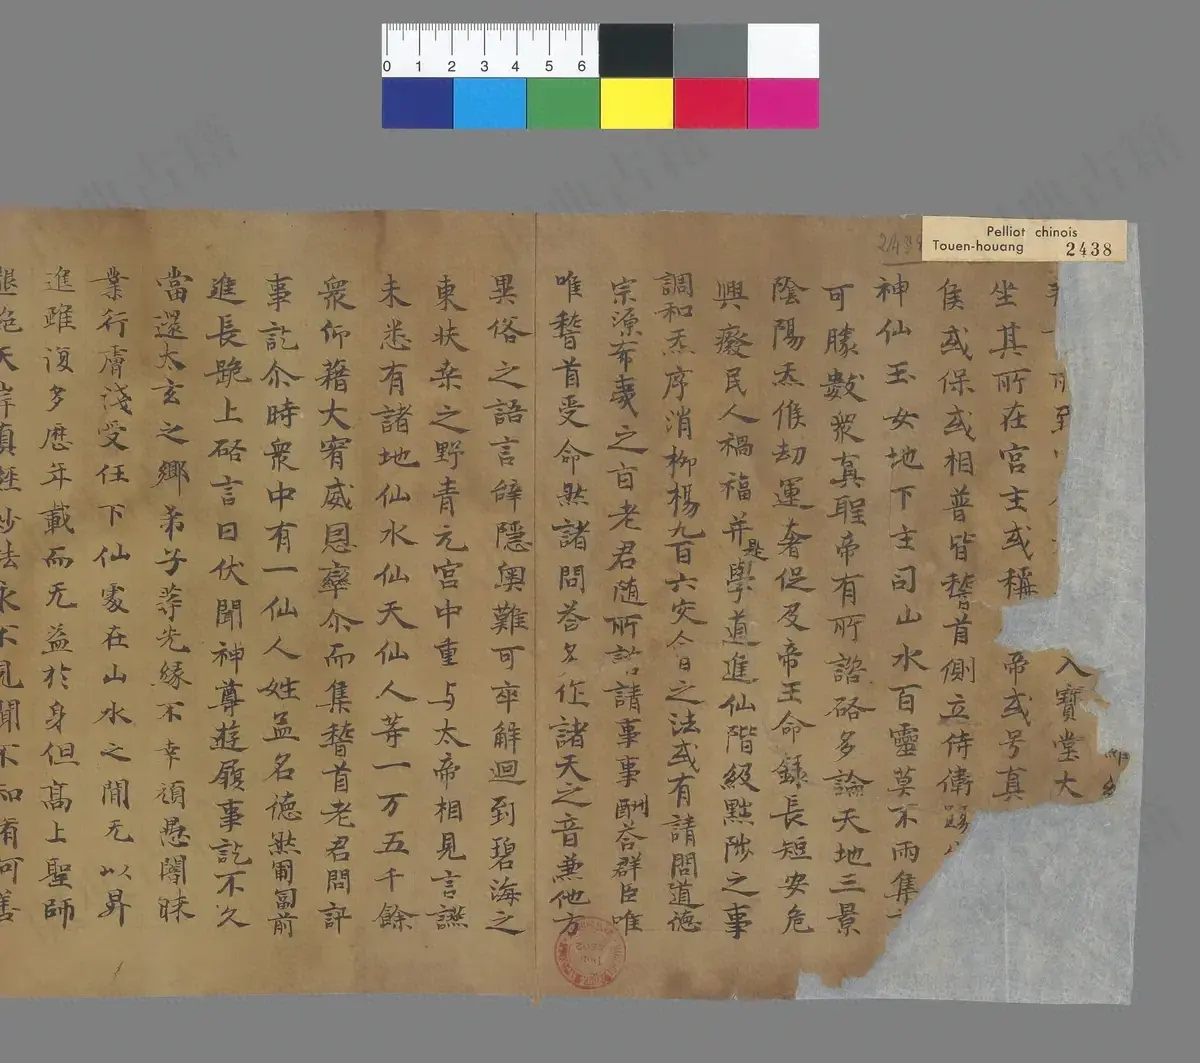 0 1 2 3 4 5 6
Pelliot chinois
Touen-houang 2438
2438
入寶堂大
坐其所在宮主或稱帝或号真
侯或保或相普皆稽首側立侍衛
神仙玉女地下主司山水百靈莫不雨集
可賸數衆真聖帝有所諮啓多論天地三景
陰陽炁候劫運奢促及帝王命錄長短安危
興癈民人禍福并是學道進仙階級㸃陟之事
調和炁序消柳楊九百六灾今日之法或有請問道德
宗源布夷之旨老君随所諮請事事酬荅群臣唯
唯稽首受命然諸問荅多作諸天之音兼他方
異俗之語言辝隱奧難可卒解迴到碧海之
東扶桒之野青元宮中重与太帝相見言讌
未悉有諸地仙水仙天仙人等一万五千餘
衆仰藉大宥威恩率尒而集稽首老君問訊
事訖尒時衆中有一仙人姓孟名德然匍匐前
進長跪上啓言曰伏聞神尊遊履事訖不久
當還太玄之鄉弟子等先緣不幸頑愚闇昧
業行膚淺受任下仙處在山水之間无以昇
進雖復多歷年載而无益於身但高上聖師